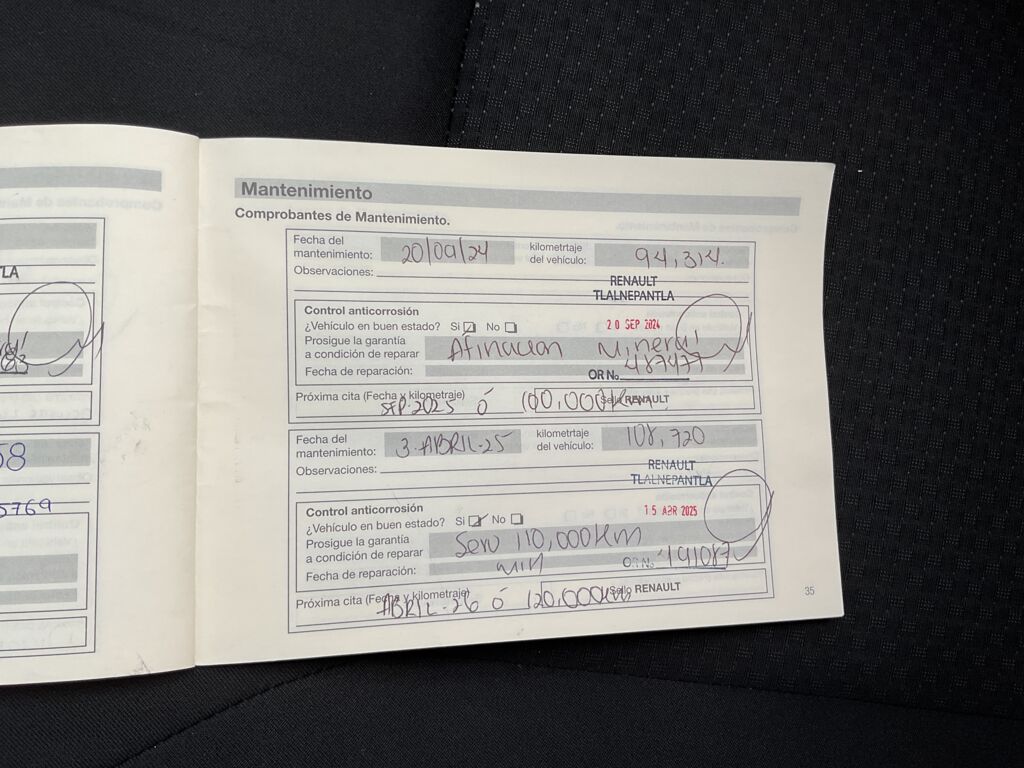 TLA
58
5769
Mantenimiento
Comprobantes de Mantenimiento.
Fecha del mantenimiento: 20/09/24 kilometrtaje del vehículo: 94,314.
Observaciones:
RENAULT
TLALNEPANTLA
Control anticorrosión
¿Vehículo en buen estado? Si No 20 SEP 2024
Prosigue la garantía
a condición de reparar Afinacion Mineral
Fecha de reparación: OR No. 487477
Próxima cita (Fecha y kilometraje) SEP-2025 ó 100,000km. Sello RENAULT
Fecha del mantenimiento: 3-ABRIL-25 kilometrtaje del vehículo: 108,720
Observaciones:
RENAULT
TLALNEPANTLA
Control anticorrosión
15 ABR 2025
¿Vehículo en buen estado? Si No
Prosigue la garantía
a condición de reparar Serv 110,000km
Fecha de reparación: Min OR No
Próxima cita (Fecha y kilometraje) ABRIL-26 ó 120,000km Sello RENAULT
35